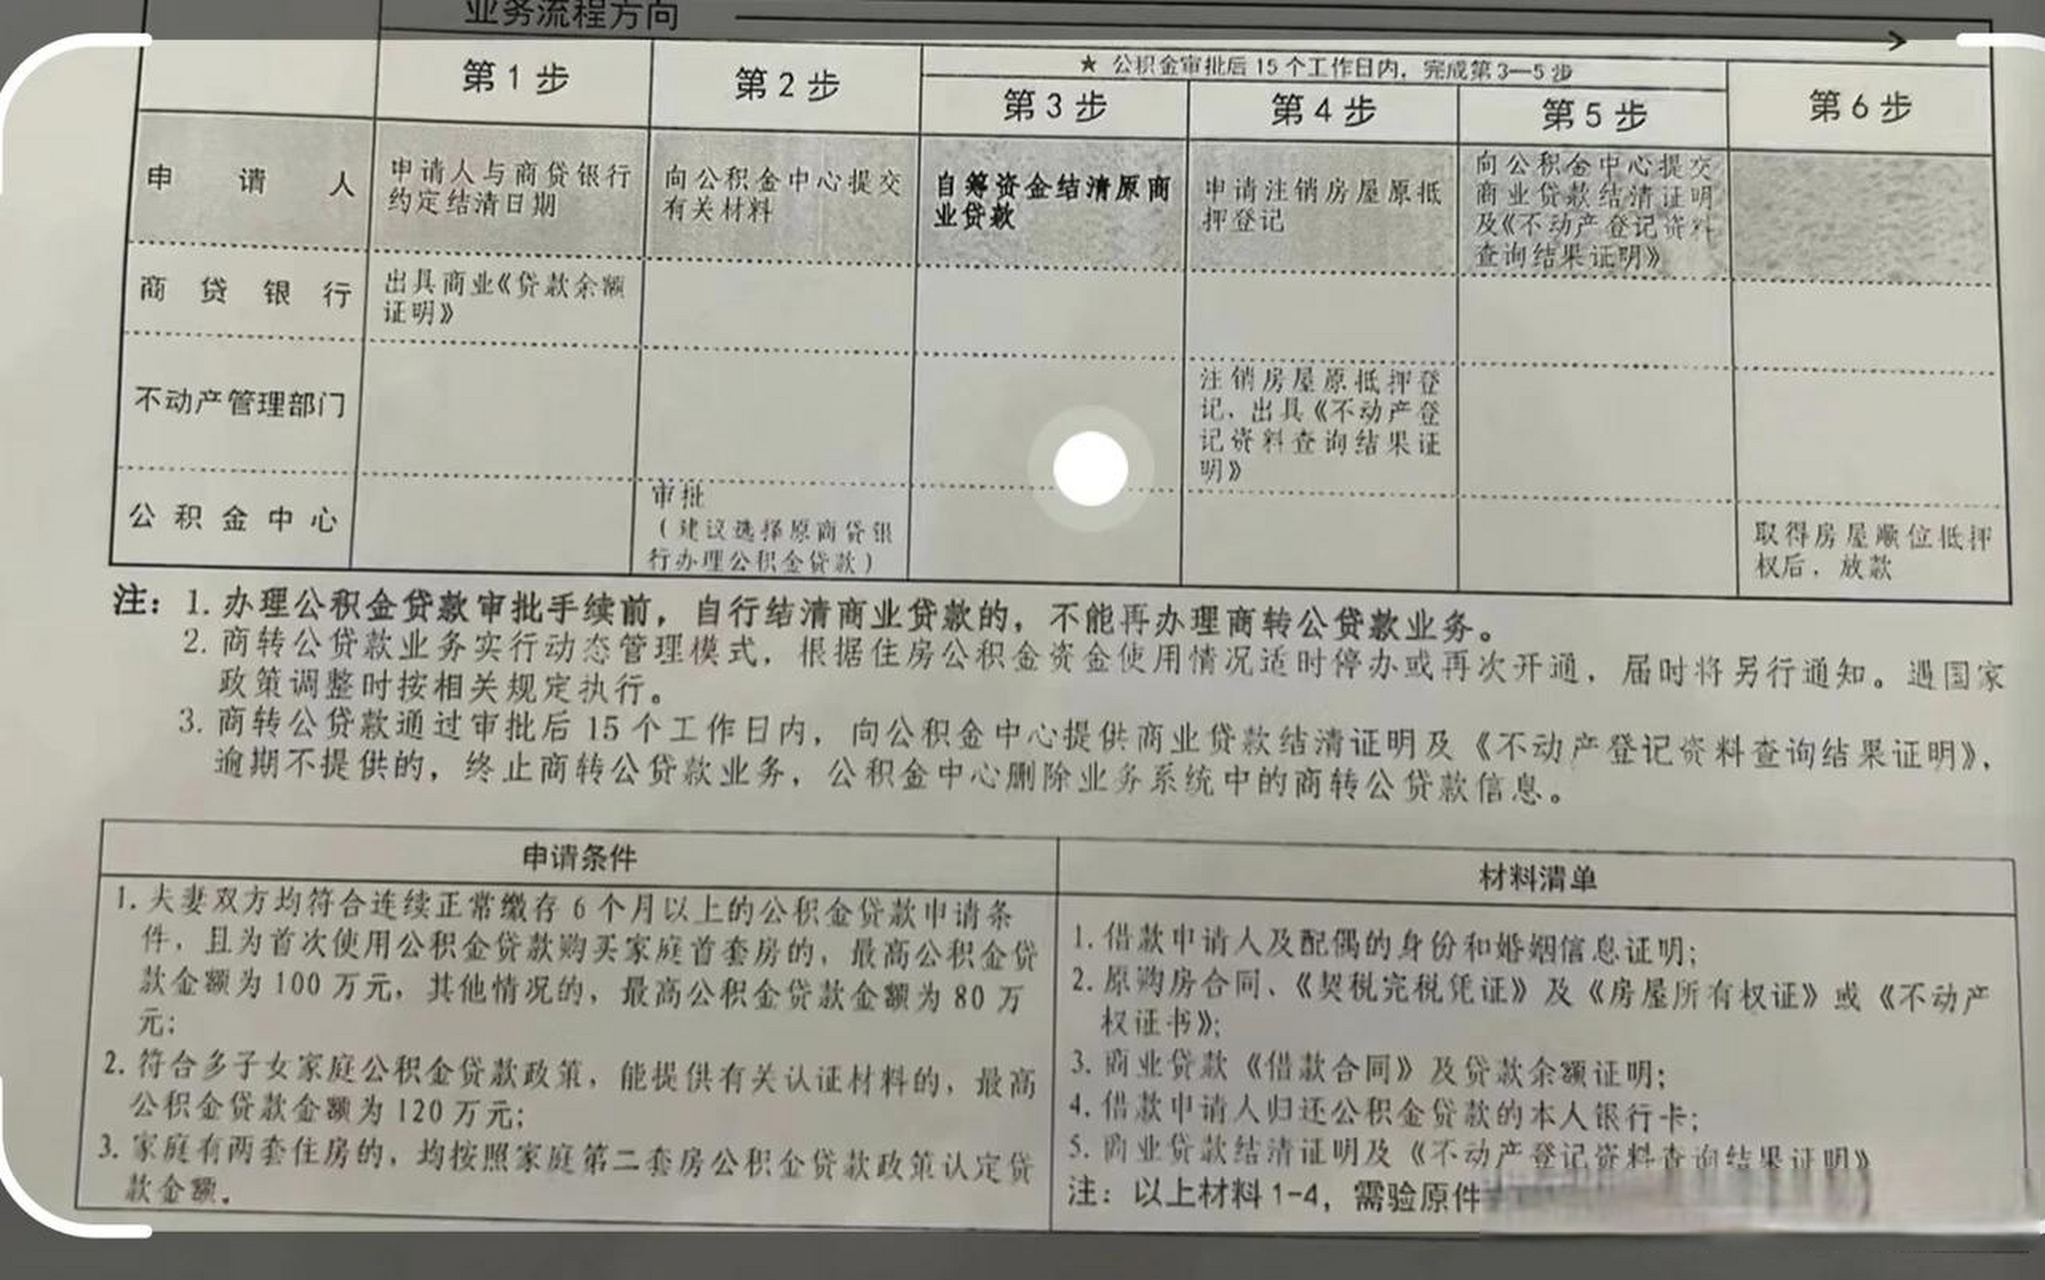 业务流程方向
★ 公积金审批后 15 个工作日内，完成第 3—5 步
第 1 步
第 2 步
第 3 步
第 4 步
第 5 步
第 6 步
申 请 人
申请人与商贷银行
约定结清日期
向公积金中心提交
有关材料
自筹资金结清原商
业贷款
申请注销房屋原抵
押登记
向公积金中心提交
商业贷款结清证明
及《不动产登记资料
查询结果证明》
商 贷 银 行
出具商业《贷款余额
证明》
不动产管理部门
注销房屋原抵押登
记，出具《不动产登
记资料查询结果证
明》
公 积 金 中 心
审批
（建议选择原商贷银
行办理公积金贷款）
取得房屋顺位抵押
权后，放款
注：1. 办理公积金贷款审批手续前，自行结清商业贷款的，不能再办理商转公贷款业务。
2. 商转公贷款业务实行动态管理模式，根据住房公积金资金使用情况适时停办或再次开通，届时将另行通知。遇国家
政策调整时按相关规定执行。
3. 商转公贷款通过审批后 15 个工作日内，向公积金中心提供商业贷款结清证明及《不动产登记资料查询结果证明》，
逾期不提供的，终止商转公贷款业务，公积金中心删除业务系统中的商转公贷款信息。
申请条件
1. 夫妻双方均符合连续正常缴存 6 个月以上的公积金贷款申请条
件，且为首次使用公积金贷款购买家庭首套房的，最高公积金贷
款金额为 100 万元，其他情况的，最高公积金贷款金额为 80 万
元；
2. 符合多子女家庭公积金贷款政策，能提供有关认证材料的，最高
公积金贷款金额为 120 万元；
3. 家庭有两套住房的，均按照家庭第二套房公积金贷款政策认定贷
款金额。
材料清单
1. 借款申请人及配偶的身份和婚姻信息证明；
2. 原购房合同、《契税完税凭证》及《房屋所有权证》或《不动产
权证书》；
3. 商业贷款《借款合同》及贷款余额证明；
4. 借款申请人归还公积金贷款的本人银行卡；
5. 商业贷款结清证明及《不动产登记资料查询结果证明》
注：以上材料 1-4，需验原件